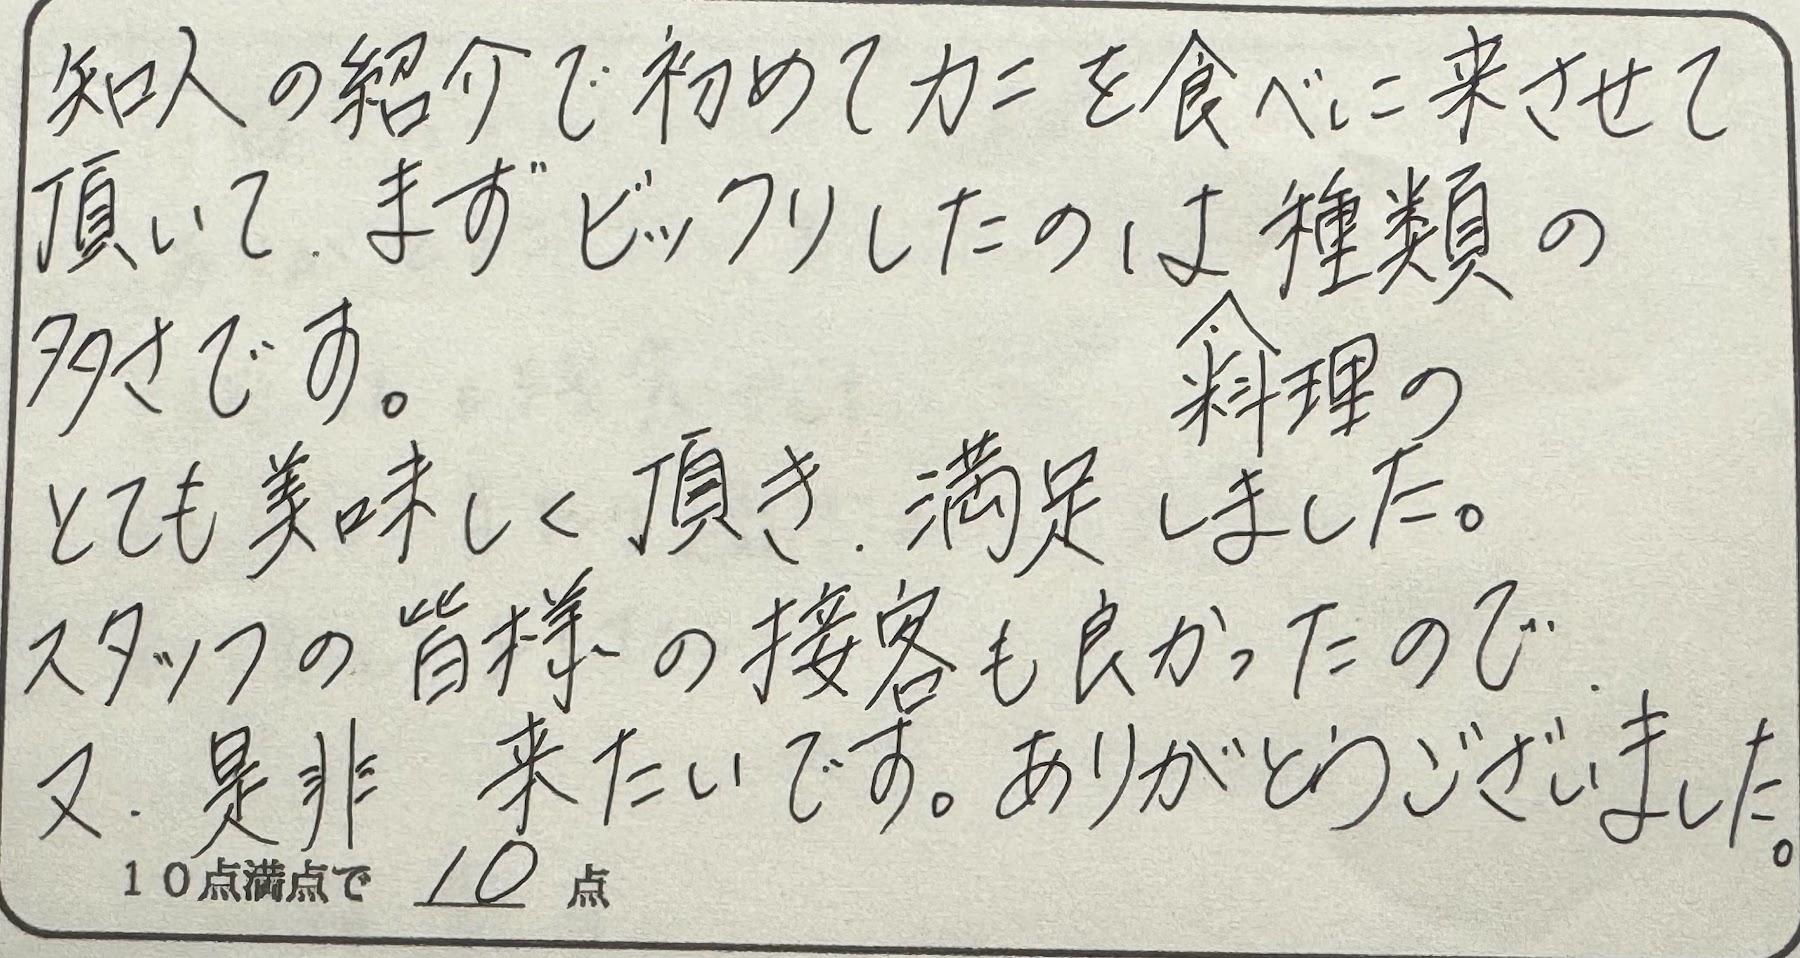 知人の紹介で初めてカニを食べに来させて
頂いて、まずビックリしたのは種類の
多さです。
料理の
とても美味しく頂き、満足しました。
スタッフの皆様の接客も良かったので、
又、是非 来たいです。ありがとうございました。
10点満点で 10 点